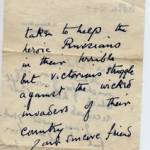 taken to help the
heroic Russians
in their terrible
but victorious struggle
against the wicked
invaders of their
country
Your sincere friend